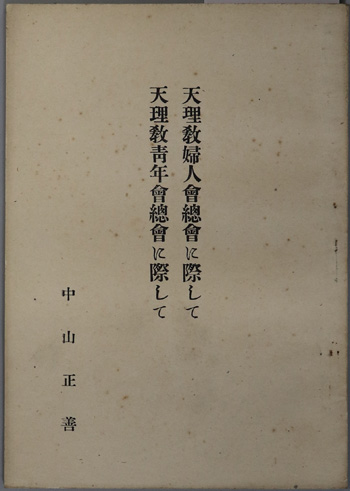 天理敎婦人會總會に際して
天理敎靑年會總會に際して
中山正善